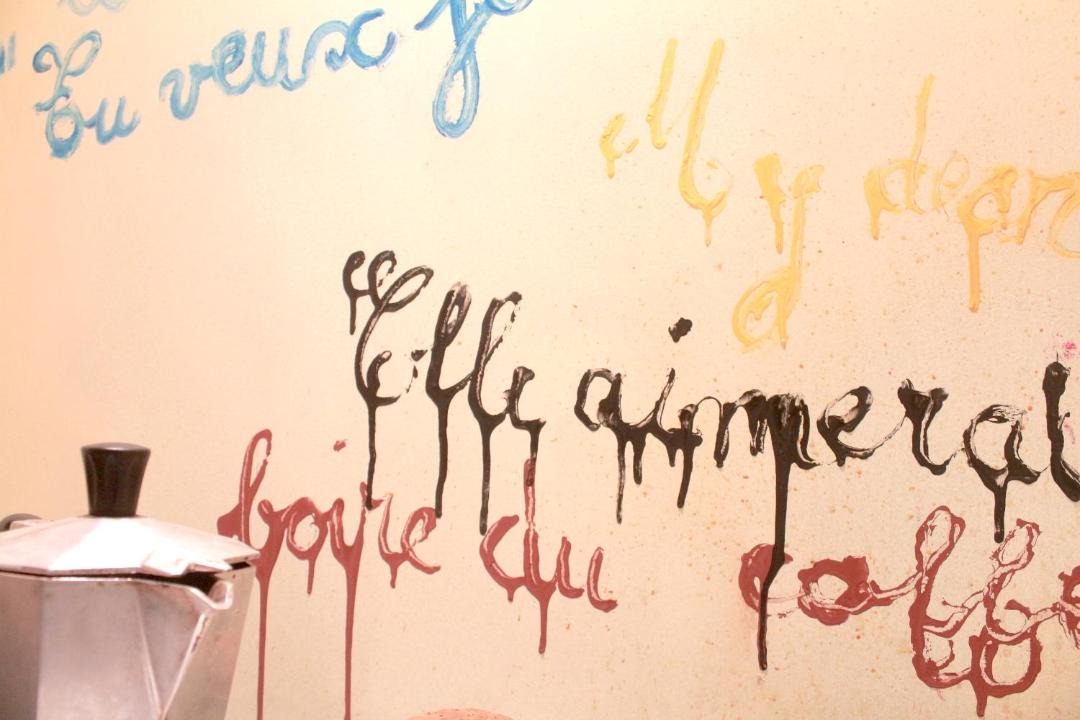 Tu veux je
"My dear
"Elle aimerai
boire du caffe